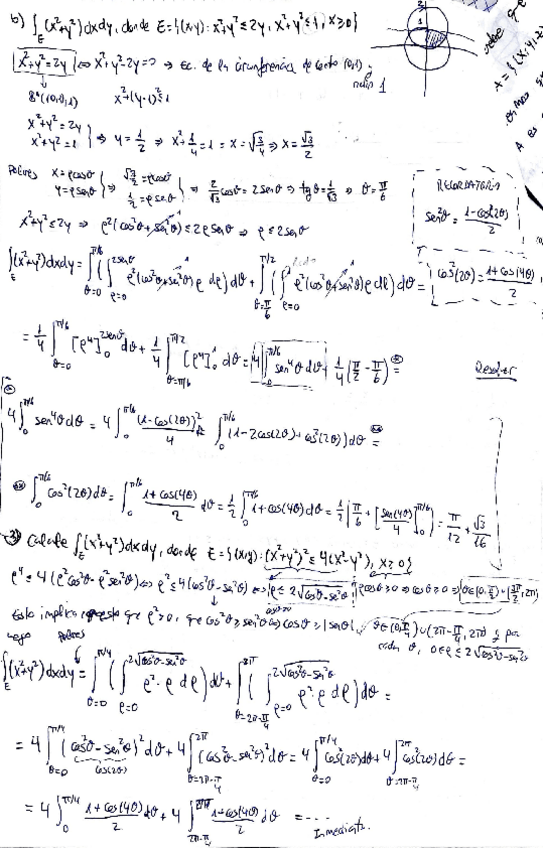 b) ∫_E (x²+y²) dxdy, donde E={(x,y): x²+y² ≤ 2y, x²+y² ≤ 1, x≥0}
x²+y²=2y ⇔ x²+y²-2y=0 → ec. de la circunferencia de centro (0,1) y radio 1
x²+(y-1)² ≤ 1
x²+y²=2y
x²+y²=1 } ⇒ y=1/2 ⇒ x²+1/4=1 ⇒ x=√(3/4) ⇒ x=√3/2
Polares x=ρcosθ y=ρsenθ } ⇒ √3/2=ρcosθ 1/2=ρsenθ } ⇒ 2/√3 cosθ = 2senθ ⇒ tgθ=1/√3 ⇒ θ=π/6
RECORDATORIO
sen²θ = (1-cos(2θ))/2
cos²(2θ) = (1+cos(4θ))/2
x²+y² ≤ 2y ⇒ ρ²(cos²θ+sen²θ) ≤ 2ρsenθ ⇒ ρ ≤ 2senθ
∫_E (x²+y²)dxdy = ∫_{θ=0}^{π/6} (∫_{ρ=0}^{2senθ} ρ²(cos²θ+sen²θ) ρ dρ) dθ + ∫_{θ=π/6}^{π/2} (∫_{ρ=0}^{1} ρ²(cos²θ+sen²θ) ρ dρ) dθ =
= 1/4 ∫_{θ=0}^{π/6} [ρ⁴]_0^{2senθ} dθ + 1/4 ∫_{θ=π/6}^{π/2} [ρ⁴]_0^1 dθ = 4∫_0^{π/6} sen⁴θ dθ + 1/4 (π/2 - π/6) =
Resolver
4∫_0^{π/6} sen⁴θ dθ = 4∫_0^{π/6} (1-cos(2θ))²/4 = ∫_0^{π/6} (1-2cos(2θ)+cos²(2θ)) dθ =
∫_0^{π/6} cos²(2θ) dθ = ∫_0^{π/6} (1+cos(4θ))/2 dθ = 1/2 ∫_0^{π/6} 1+cos(4θ) dθ = 1/2 (π/6 + [sen(4θ)/4]_0^{π/6}) = π/12 + √3/16
3) Calcule ∫_E (x²+y²)dxdy, donde E={(x,y): (x²+y²)² ≤ 4(x²-y²), x≥0}
ρ⁴ ≤ 4(ρ²cos²θ-ρ²sen²θ) ⇔ ρ² ≤ 4(cos²θ-sen²θ) ⇔ ρ ≤ 2√(cos²θ-sen²θ) ρcosθ≥0 ⇔ cosθ≥0 ⇔ θ∈[0,π/2)∪(3π/2,2π)
Esto implica que ρ²>0, que cos²θ≥sen²θ ⇔ cosθ≥|senθ|. θ∈(0,π/4)∪(2π-π/4,2π) y para
cada θ, 0≤ρ≤2√(cos²θ-sen²θ)
Luego Polares
∫_E (x²+y²) = ∫_{θ=0}^{π/4} (∫_{ρ=0}^{2√(cos²θ-sen²θ)} ρ²·ρ dρ) dθ + ∫_{θ=2π-π/4}^{2π} (∫_{ρ=0}^{2√(cos²θ-sen²θ)} ρ²·ρ dρ) dθ =
= 4∫_{θ=0}^{π/4} (cos²θ-sen²θ)² dθ + 4∫_{θ=2π-π/4}^{2π} (cos²θ-sen²θ)² dθ = 4∫_{θ=0}^{π/4} cos²(2θ)dθ + 4∫_{θ=2π-π/4}^{2π} cos²(2θ)dθ =
cos(2θ)
= 4∫_0^{π/4} (1+cos(4θ))/2 dθ + 4∫_{2π-π/4}^{2π} (1+cos(4θ))/2 dθ = ...
Inmediata.